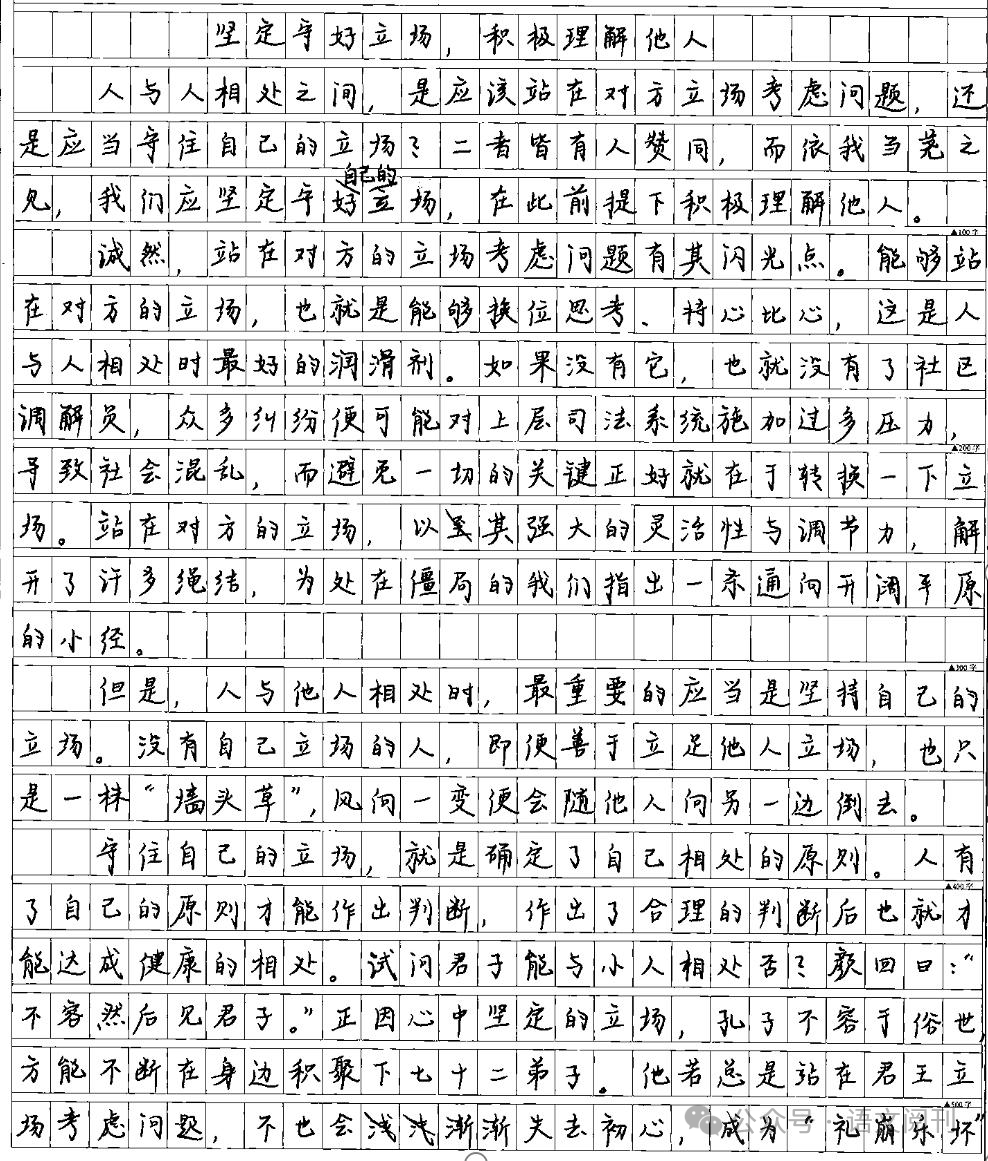 坚定守好立场，积极理解他人
人与人相处之间，是应该站在对方立场考虑问题，还
是应当守住自己的立场？二者皆有人赞同，而依我当芜之
见，我们应坚定守好自己的立场，在此前提下积极理解他人。
▲100字
诚然，站在对方的立场考虑问题有其闪光点。能够站
在对方的立场，也就是能够换位思考、将心比心，这是人
与人相处时最好的润滑剂。如果没有它，也就没有了社区
调解员，众多纠纷便可能对上层司法系统施加过多压力，
▲200字
导致社会混乱，而避免一切的关键正好就在于转换一下立
场。站在对方的立场，以其强大的灵活性与调节力，解
开了许多绳结，为处在僵局的我们指出一条通向开阔平原
的小径。
▲300字
但是，人与他人相处时，最重要的应当是坚持自己的
立场。没有自己立场的人，即便善于立足他人立场，也只
是一株“墙头草”，风向一变便会随他人向另一边倒去。
守住自己的立场，就是确定了自己相处的原则。人有
▲400字
了自己的原则才能作出判断，作出了合理的判断后也就才
能达成健康的相处。试问君子能与小人相处否？颜回曰：“
不容然后见君子。”正因心中坚定的立场，孔子不容于俗世，
方能不断在身边积聚下七十二弟子。他若总是站在君王立
▲500字
场考虑问题，不也会渐渐失去初心，成为“礼崩乐坏”
公众号·语文阅刊